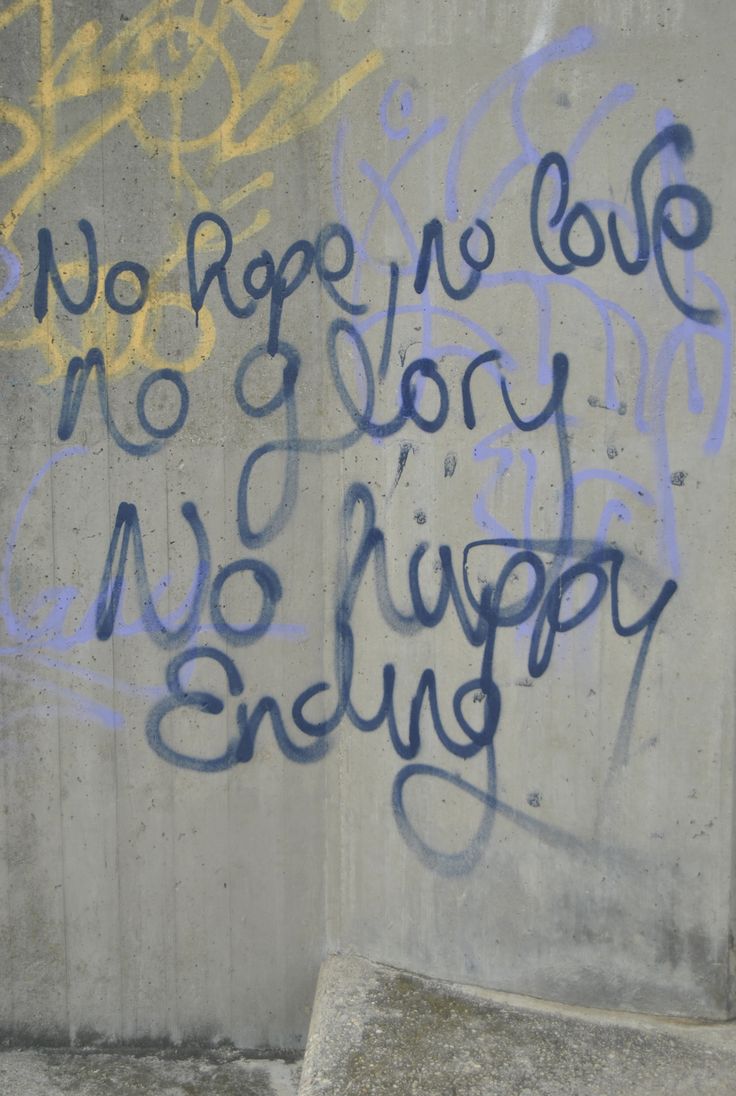 No hope, no love
no glory
No happy
Ending